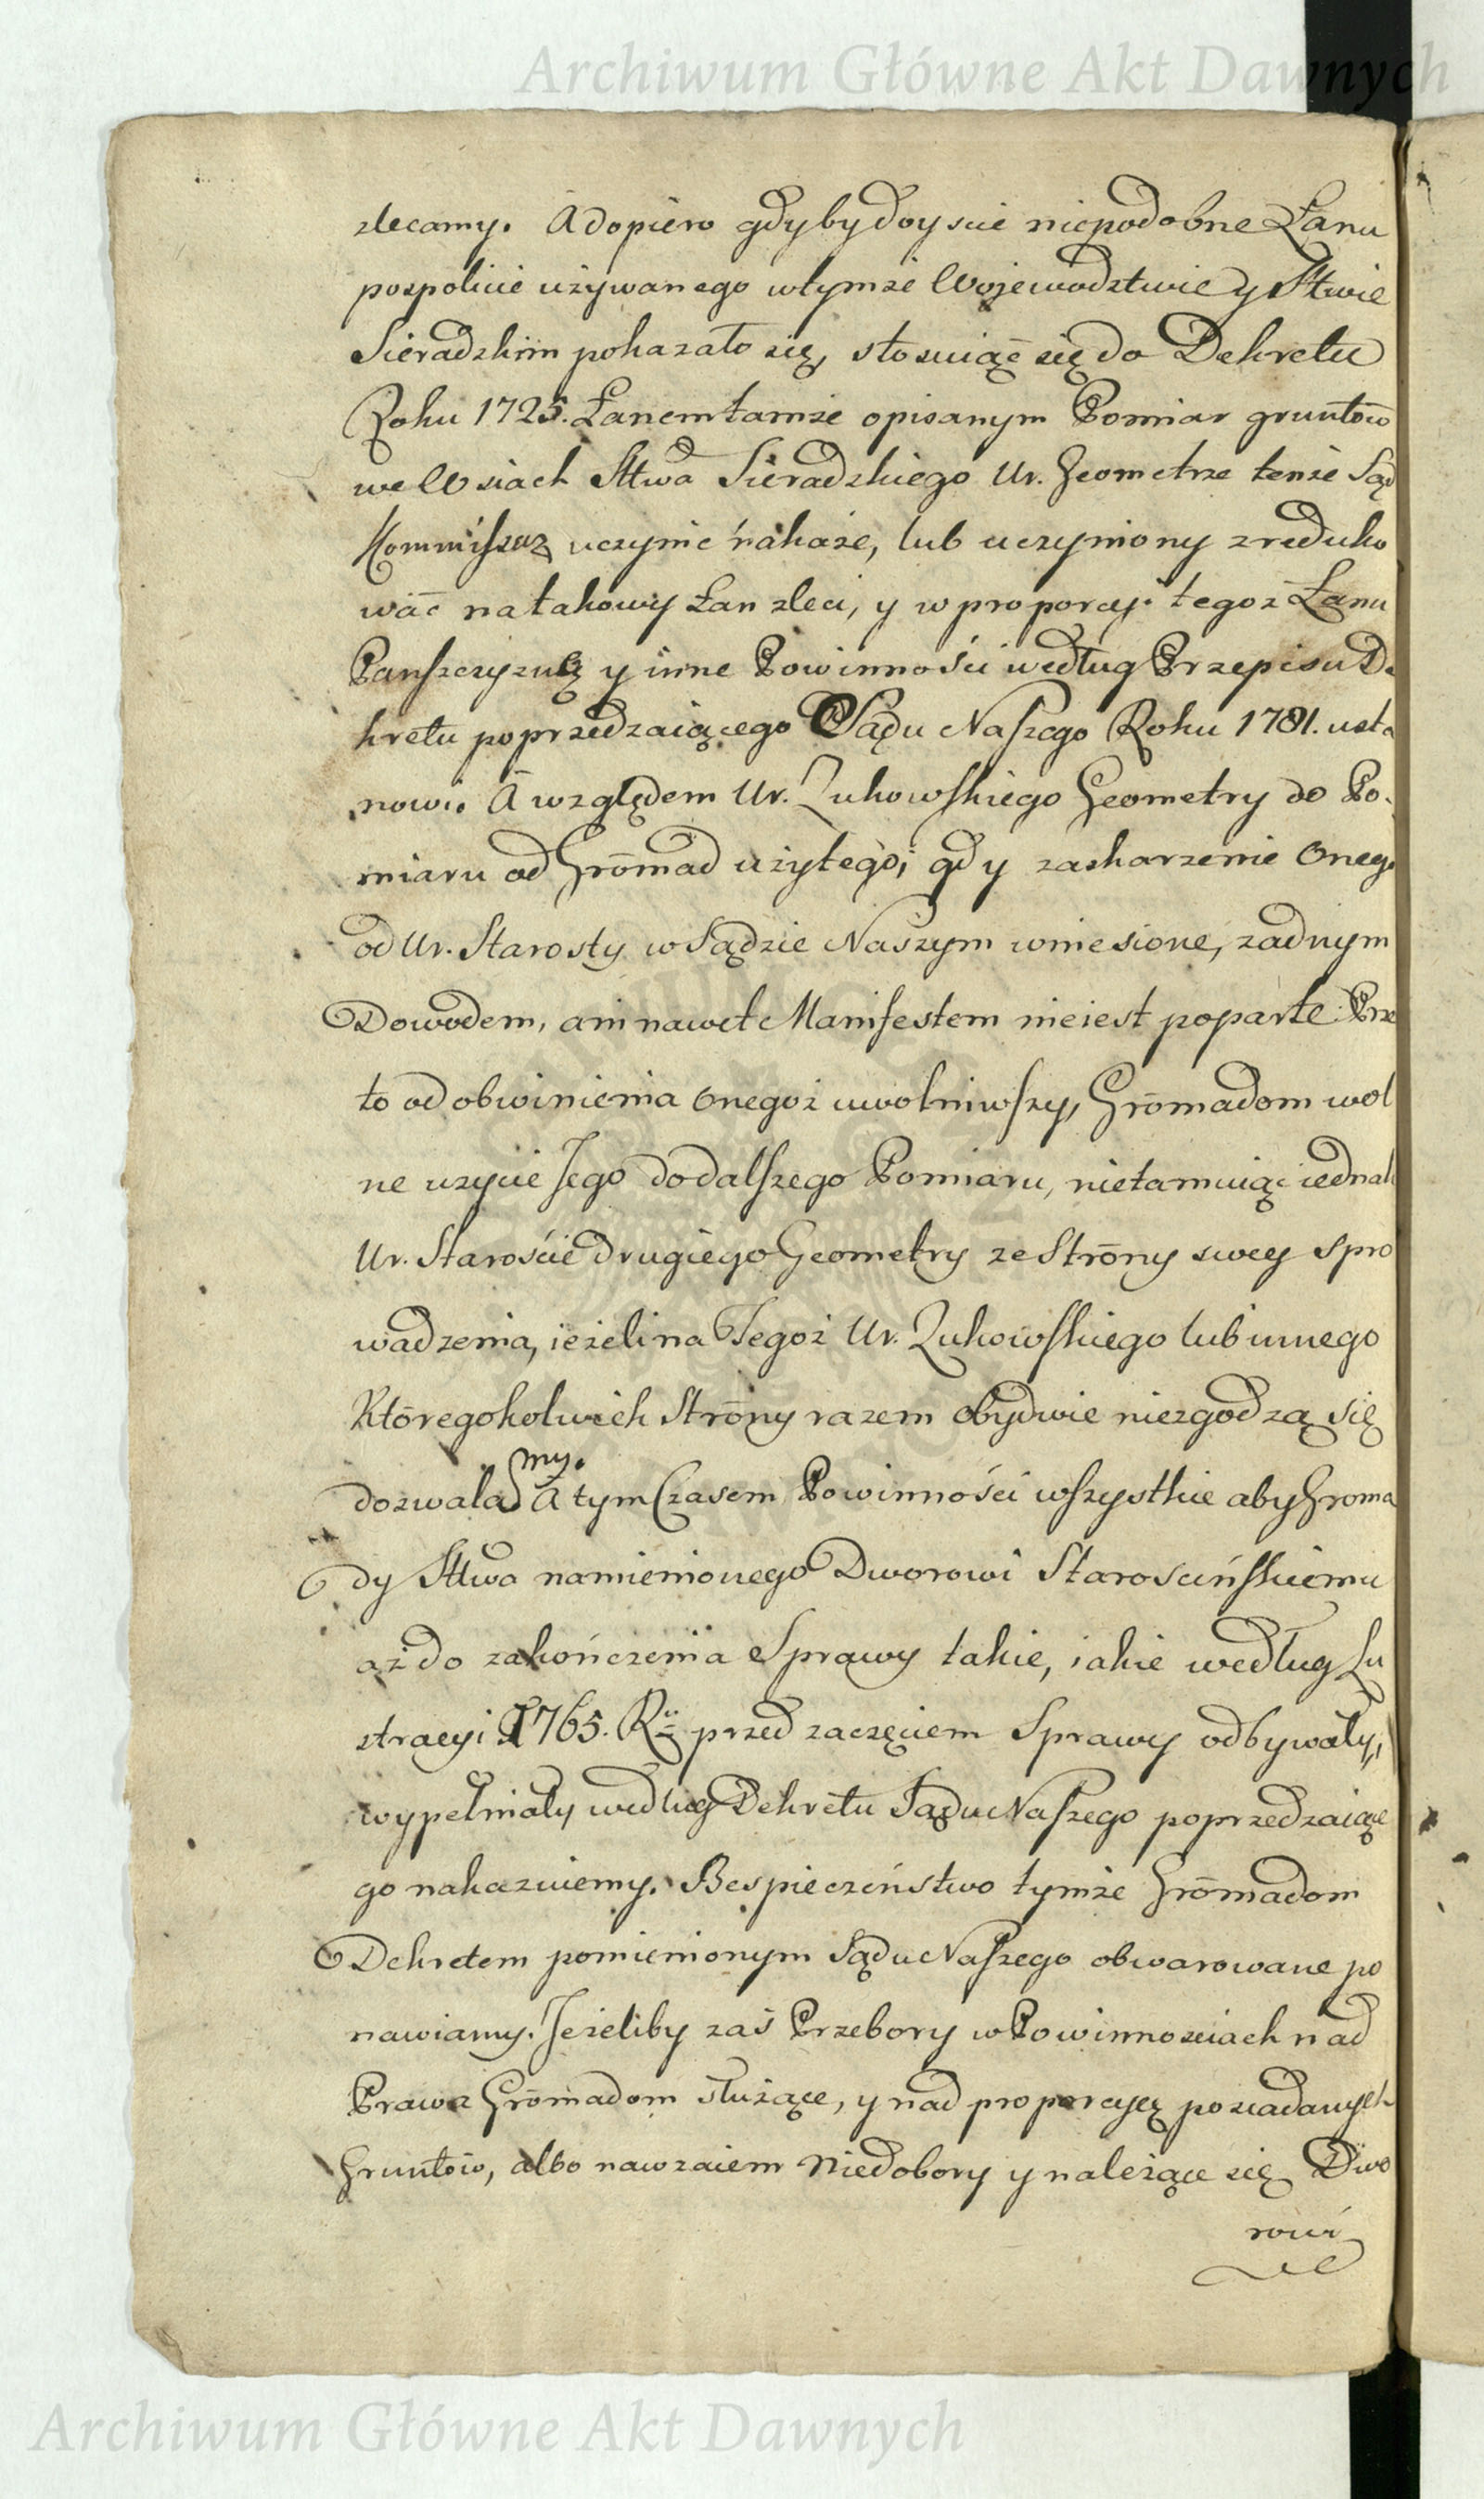 Archiwum Główne Akt Dawnych
zlecamy. A dopiero gdyby doyscie niepodobne Łanu
pospolicie używanego w tymże Wojewodztwie y Sttwie
Sieradzkim pokazało się, stosuiąc się do Dekretu
Roku 1725. Łanem tamże opisanym Pomiar gruntów
we Wsiach Sttwa Sieradzkiego Ur. Geometrze tenże Sąd
Kommissar: uczynić nakaże, lub uczyniony zreduko
wać na takowy Łan zleci, y w proporcyi tegoż Łanu
Panszczyznę y inne Powinności według Przepisu De
kretu poprzedzaiącego Sądu Naszego Roku 1781. usta
nowi. A względem Ur. Zukowskiego Geometry do Po-
miaru od Grómad użytego, gdy zaskarzenie onego
od Ur. Starosty w Sądzie Naszym wniesione, żadnym
Dowodem, ani nawet Manifestem nieiest poparte Prze
to od obwinienia onegoż uwolniwszy, Grómadom wol
ne uzycie Jego do dalszego Pomiaru, nietamuiąc iednak
Ur. Starościе drugiego Geometry ze Stróny swey spro
wadzenia, ieżeli na Tegoż Ur. Zukowskiego lub innego
Któregokolwiek Stróny razem obydwie niezgodzą się
dozwalamy. A tym Czasem Powinności wszystkie aby Groma
dy Sttwa namienionego Dworowi Starościńskiemu
aż do zakończenia Sprawy takie, iakie według Lu
stracyi 1765. Ru przed zaczęciem Sprawy odbywały,
wypełniały według Dekretu Sądu Naszego poprzedzaiące
go nakazuiemy. Bespieczeństwo tymże Grómadom
Dekretem pomienionym Sądu Naszego obwarowane po
nawiamy. Jeżeliby zaś Przebory w Powinnosciach nad
Prawa Grómadom służące, y nad proporcyę posiadanych
Gruntów, albo nawzaiem Niedobory y należące się Dwo
rowi
Archiwum Główne Akt Dawnych